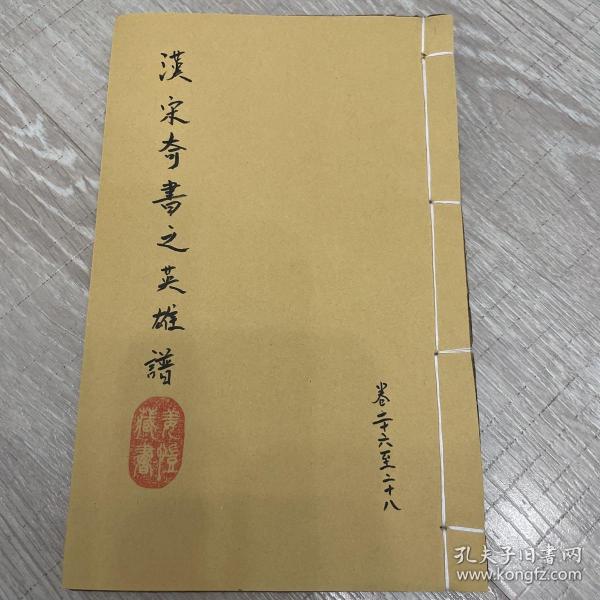 漢宋奇書之英雄譜
姜愷藏書
卷二十六至二十八
孔夫子旧书网
www.kongfz.com